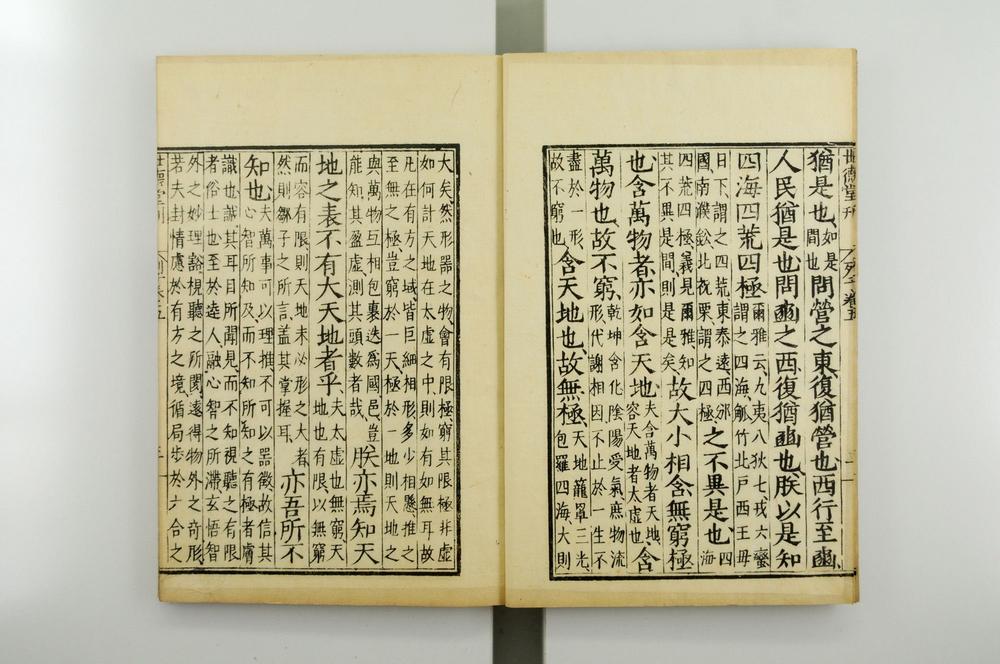 世德堂刊
猶是也如是間也問營之東復猶營也西行至豳
人民猶是也問豳之西復猶豳也朕以是知
四海四荒四極爾雅云九夷八狄七戎六蠻
謂之四海觚竹北戶西王母
日下謂之四荒東泰遠西邠
國南濮鈆北祝栗謂之四極之不異是也四海
四荒四極義見爾雅知
其不異是間則是是矣故大小相含無窮極
也含萬物者亦如含天地夫含萬物者天地
容天地者太虛也含
萬物也故不窮乾坤含化陰陽受氣庶物流
形代謝相因不止於一生不
盡於一形
故不窮也含天地也故無極天地籠罩三光
包羅四海大則
大矣然形器之物會有限極窮其限極非虛
如何計天地在太虛之中則如有如無耳故
凡在有方之域皆巨細相形多少相懸推之
至無之極豈窮於一天極於一地則天地之
與萬物互相包裹迭爲國邑豈
能知其盈虛測其頭數者哉朕亦焉知天
地之表不有大天地者乎夫太虛也無窮天
地也有限以無窮
而容有限則天地未必形之大者
然則鄒子之所言盖其掌握耳亦吾所不
知也夫萬事可以理推不可以器徵故信其
心智所知及而不知所知之有極者膚
識也誠其耳目所聞見而不知視聽之有限
者俗士也至於達人融心智之所滯玄悟智
外之妙理豁視聽之所閡遠得物外之奇形
若夫封情慮於有方之境循局步於六合之
世德堂刊